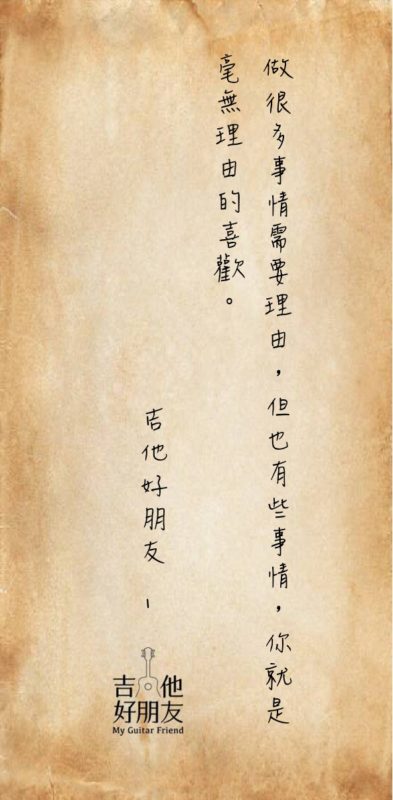 做很多事情需要理由，但也有些事情，你就是
毫無理由的喜歡。
吉他好朋友 –
吉他
好朋友
My Guitar Friend